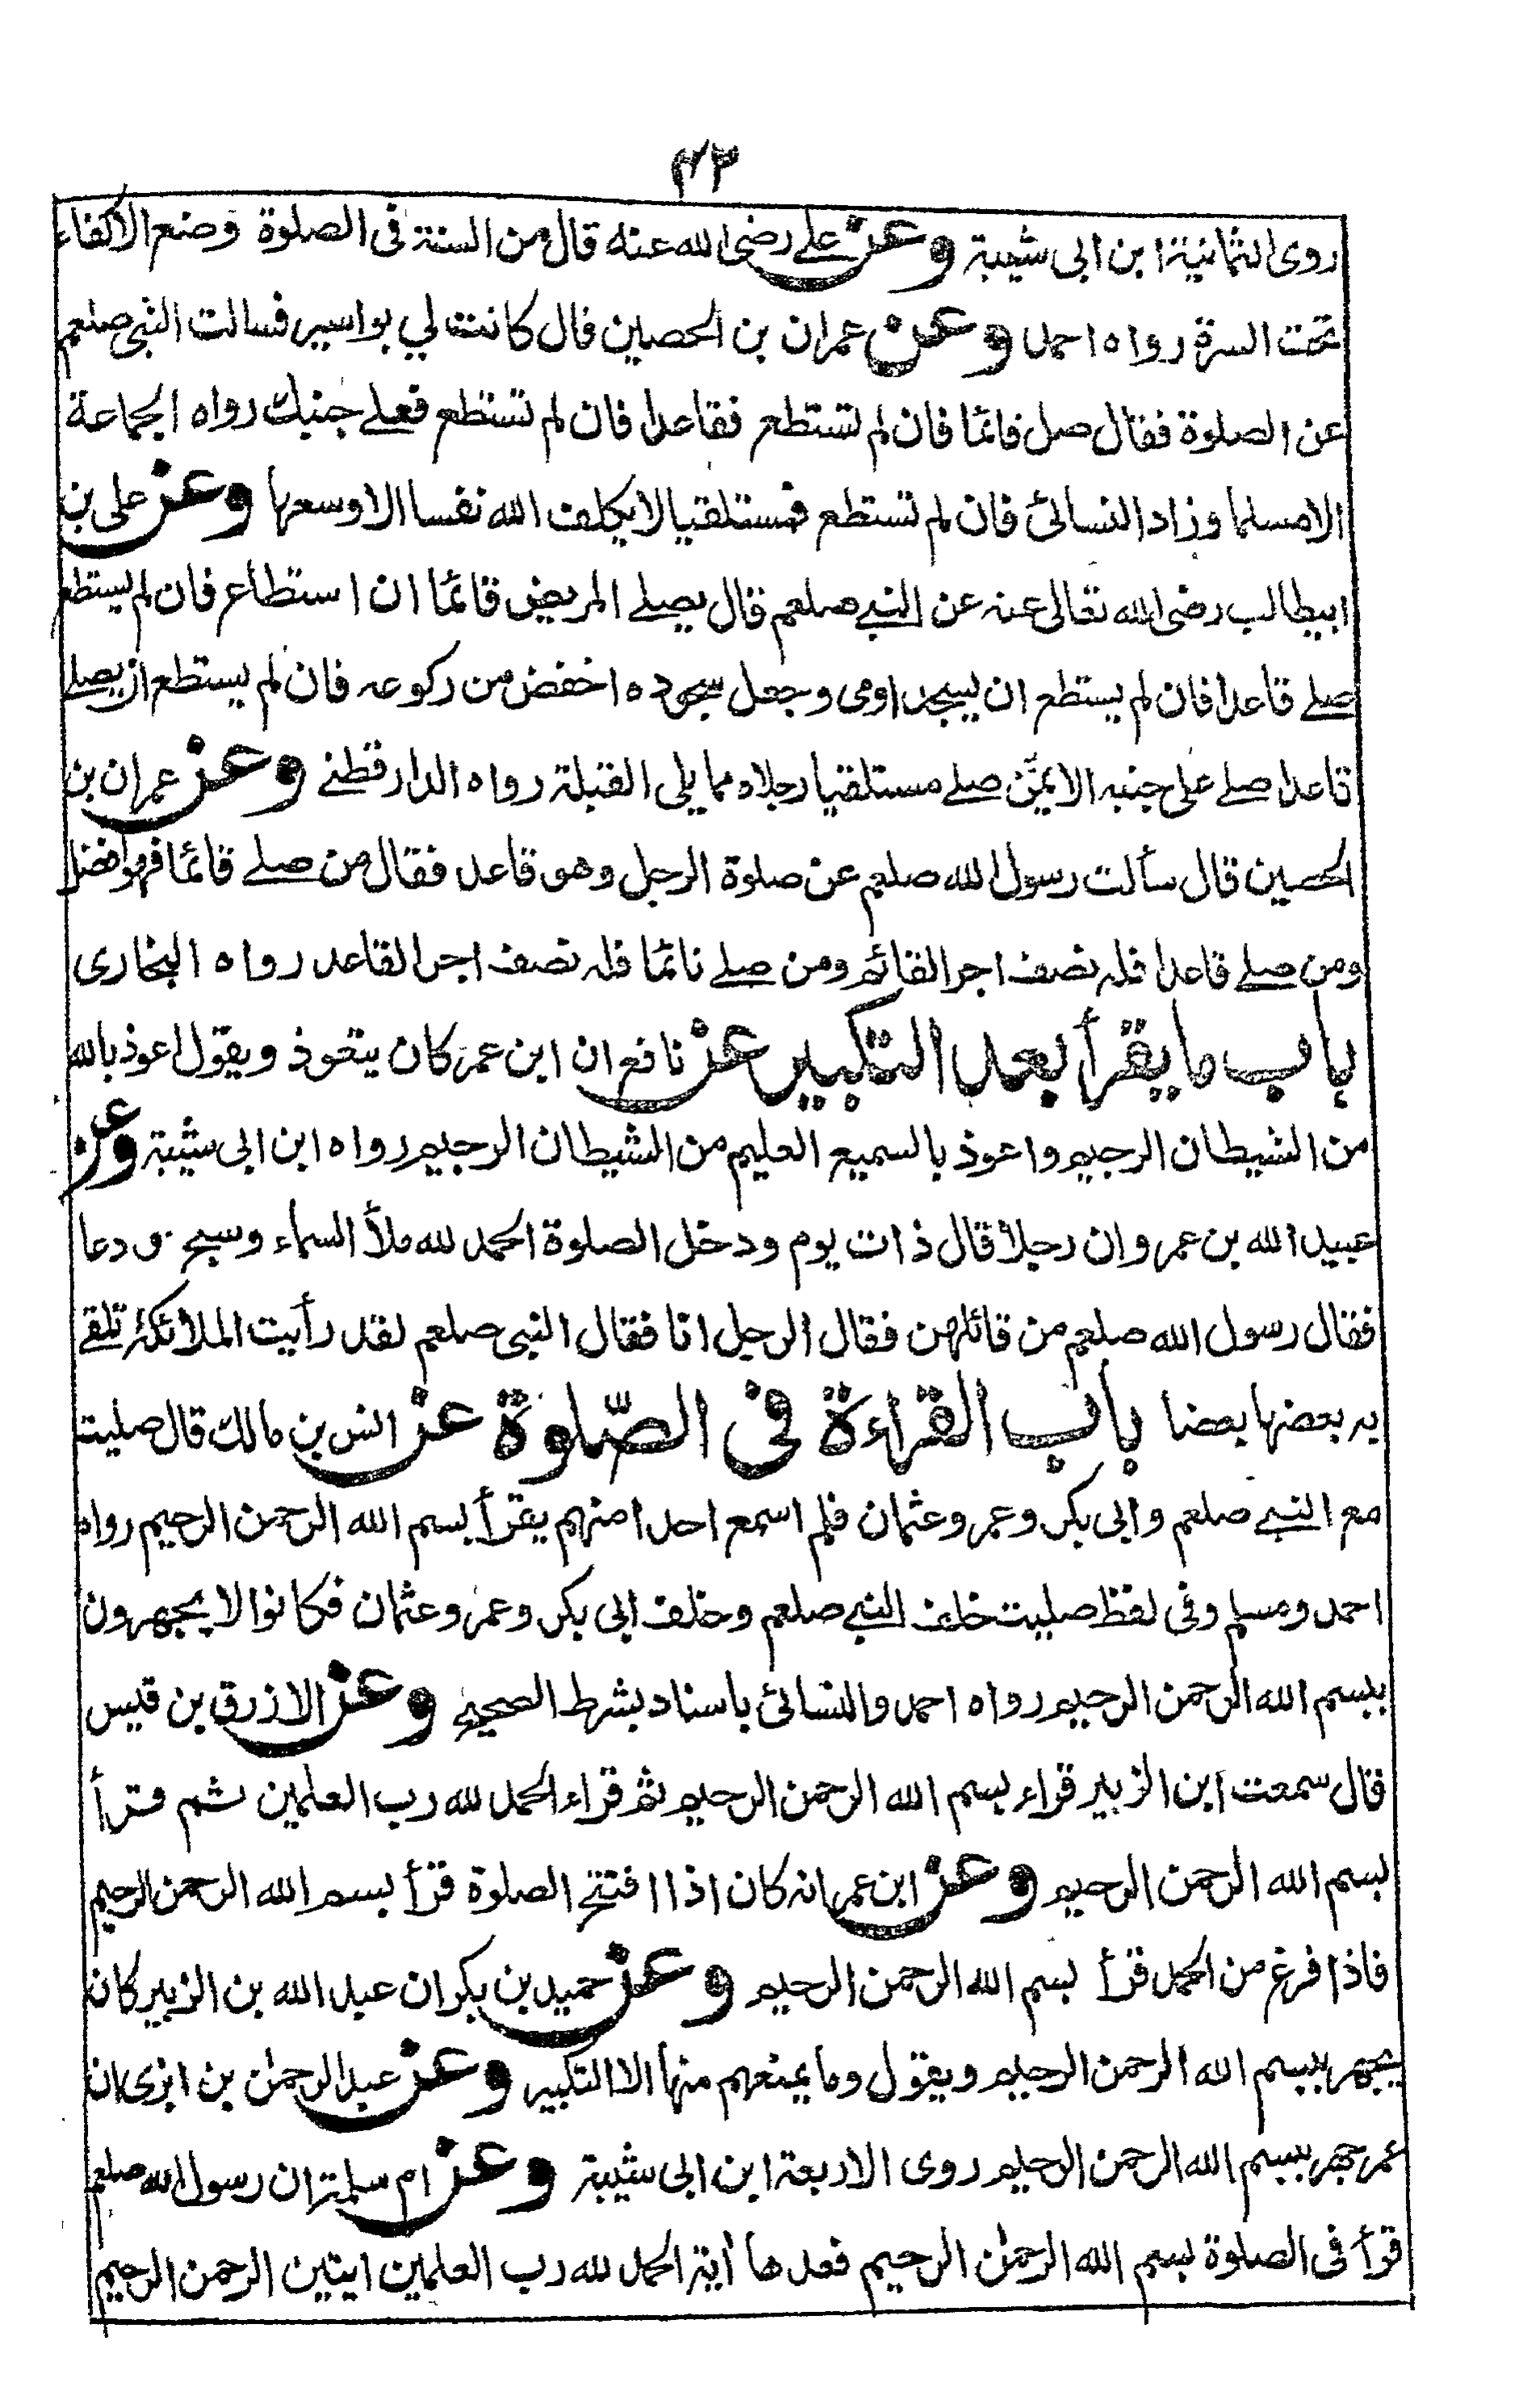 ٤٢
روى الثمانية ابن ابى شيبة وعن على رضى الله عنه قال من السنة فى الصلوة وضع الاكفاء
تحت السرة رواه احمد وعن عمران بن الحصين قال كانت لي بواسير فسالت النبى صلعم
عن الصلوة فقال صل قائما فان لم تستطع فقاعدا فان لم تستطع فعلى جنبك رواه الجماعة
الا مسلما وزاد النسائى فان لم تستطع فمستلقيا لا يكلف الله نفسا الا وسعها وعن على بن
ابيطالب رضى الله تعالى عنه عن النبى صلعم قال يصلى المريض قائما ان استطاع فان لم يستطع
صلى قاعدا فان لم يستطع ان يسجد اومى وجعل سجوده اخفض من ركوعه فان لم يستطع ان يصلى
قاعدا صلى على جنبه الايمن صلى مستلقيا رجلاه مما يلى القبلة رواه الدارقطنى وعن عمران بن
الحصين قال سألت رسول الله صلعم عن صلوة الرجل وهو قاعد فقال من صلى قائما فهو افضل
ومن صلى قاعدا فله نصف اجر القائم ومن صلى نائما فله نصف اجر القاعد رواه البخارى
باب ما يقرأ بعد التكبير عن نافع ان ابن عمر كان يتعوذ ويقول اعوذ بالله
من الشيطان الرجيم واعوذ بالسميع العليم من الشيطان الرجيم رواه ابن ابى شيبة وعن
عبيد الله بن عمر وان رجلا قال ذات يوم ودخل الصلوة الحمد لله ملأ السماء وسبح ودعا
فقال رسول الله صلعم من قائلهن فقال الرجل انا فقال النبى صلعم لقد رأيت الملائكة تلقى
به بعضها بعضا باب القراءة فى الصّلوة عن انس بن مالك قال صليت
مع النبى صلعم وابى بكر وعمر وعثمان فلم اسمع احدا منهم يقرأ بسم الله الرحمن الرحيم رواه
احمد ومسلم وفى لفظ صليت خلف النبى صلعم وخلف ابى بكر وعمر وعثمان فكانوا لا يجهرون
ببسم الله الرحمن الرحيم رواه احمد والنسائى باسناد بشرط الصحيح وعن الازرق بن قيس
قال سمعت ابن الزبير قراء بسم الله الرحمن الرحيم ثم قراء الحمد لله رب العلمين ثم قرأ
بسم الله الرحمن الرحيم وعن ابن عمر انه كان اذا افتتح الصلوة قرأ بسم الله الرحمن الرحيم
فاذا فرغ من الحمد قرأ بسم الله الرحمن الرحيم وعن حميد بن بكر ان عبد الله بن الزبير كان
يجهر ببسم الله الرحمن الرحيم ويقول وما يمنعهم منها الا التكبير وعن عبد الرحمن بن ابزى ان
عمر جهر ببسم الله الرحمن الرحيم روى الاربعة ابن ابى شيبة وعن ام سلمة ان رسول الله صلعم
قرأ فى الصلوة بسم الله الرحمن الرحيم فعدها اية الحمد لله رب العلمين ايتين الرحمن الرحيم